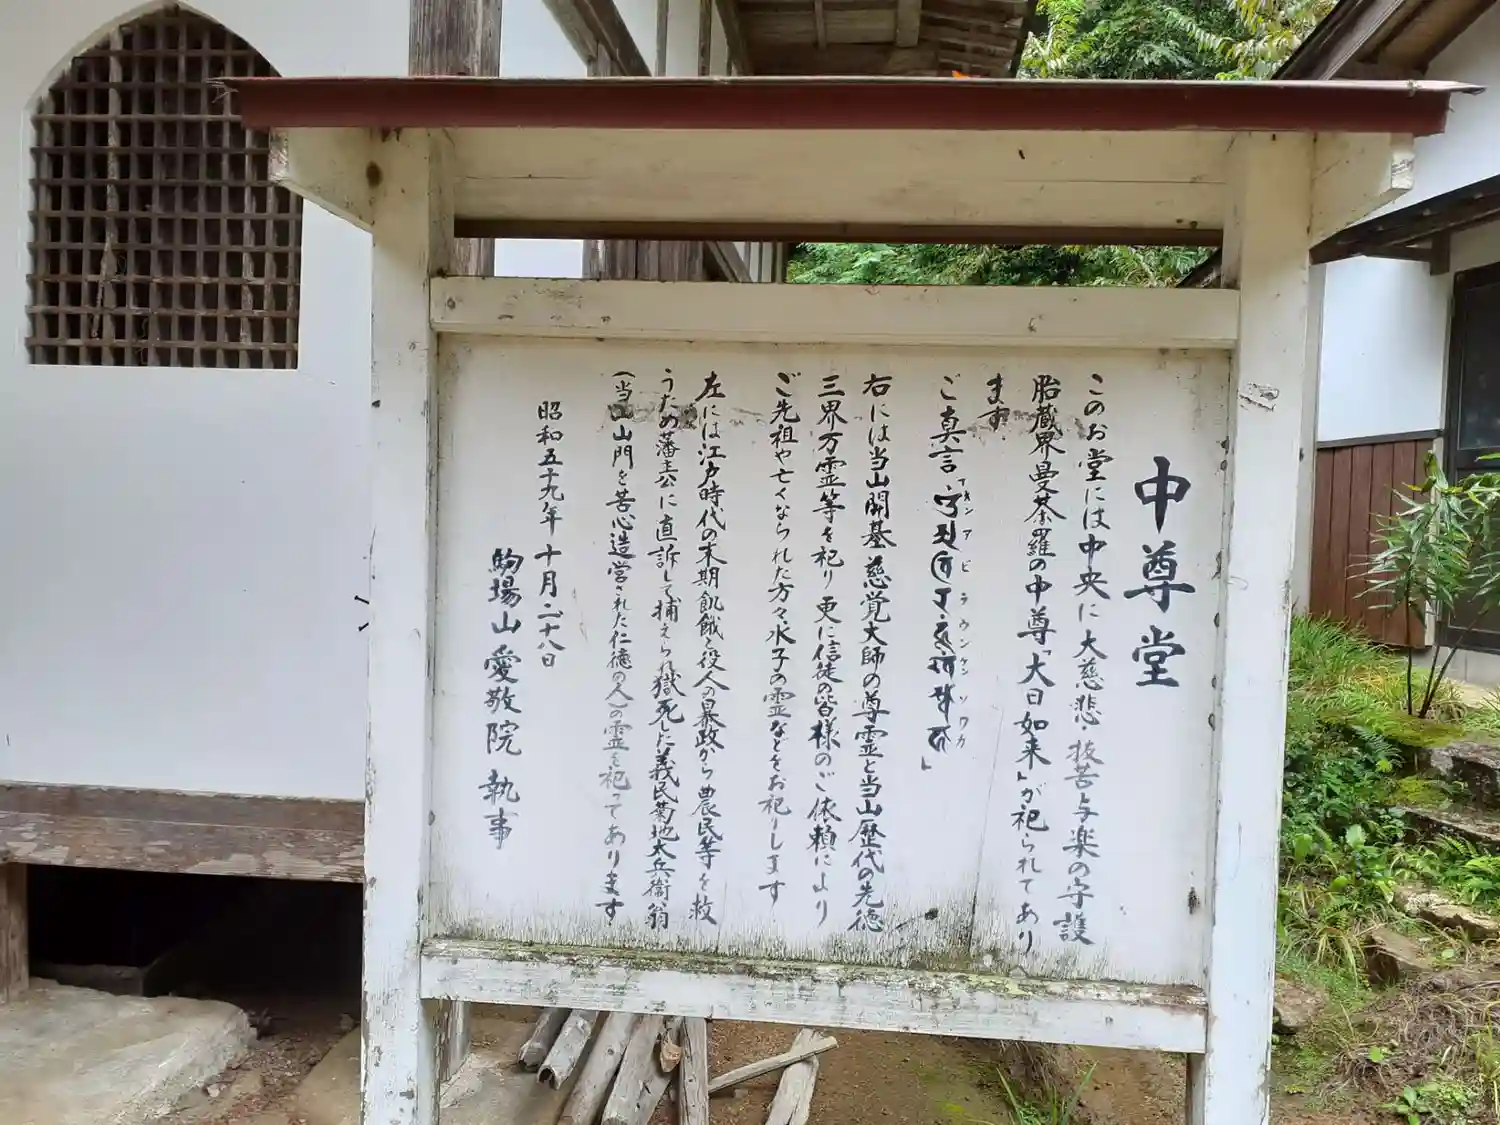 中尊堂
このお堂には中央に大慈悲・抜苦与楽の守護
胎蔵界曼荼羅の中尊「大日如来」が祀られてあり
ます
ご真言
アビラウンケンソワカ
右には当山開基慈覚大師の尊霊と当山歴代の先徳
三界万霊等を祀り更に信徒の皆様のご依頼により
ご先祖や亡くなられた方々水子の霊などをお祀りします
左には江戸時代の末期飢餓と役人の暴政から農民等を救
うため藩主公に直訴して捕えられ獄死した義民菊地大兵衛翁
(当山山門を苦心造営された仁徳の人)の霊を祀ってあります
昭和五十九年十月二十八日
駒場山愛敬院執事